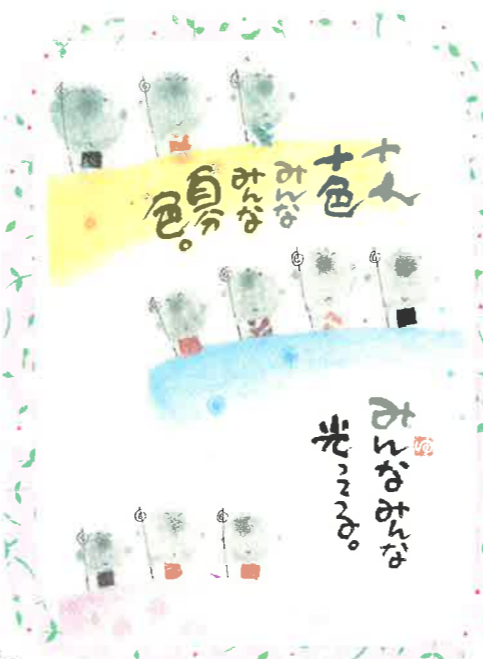 十人
十色
みんな
みんな
自分
色。
みんなみんな
光ってる。